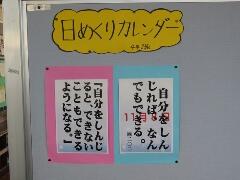 日めくりカレンダー
「自分をしんじ
ると、できない
こともできる
ようになる。」
自分をしん
じれば、なん
でもできる。